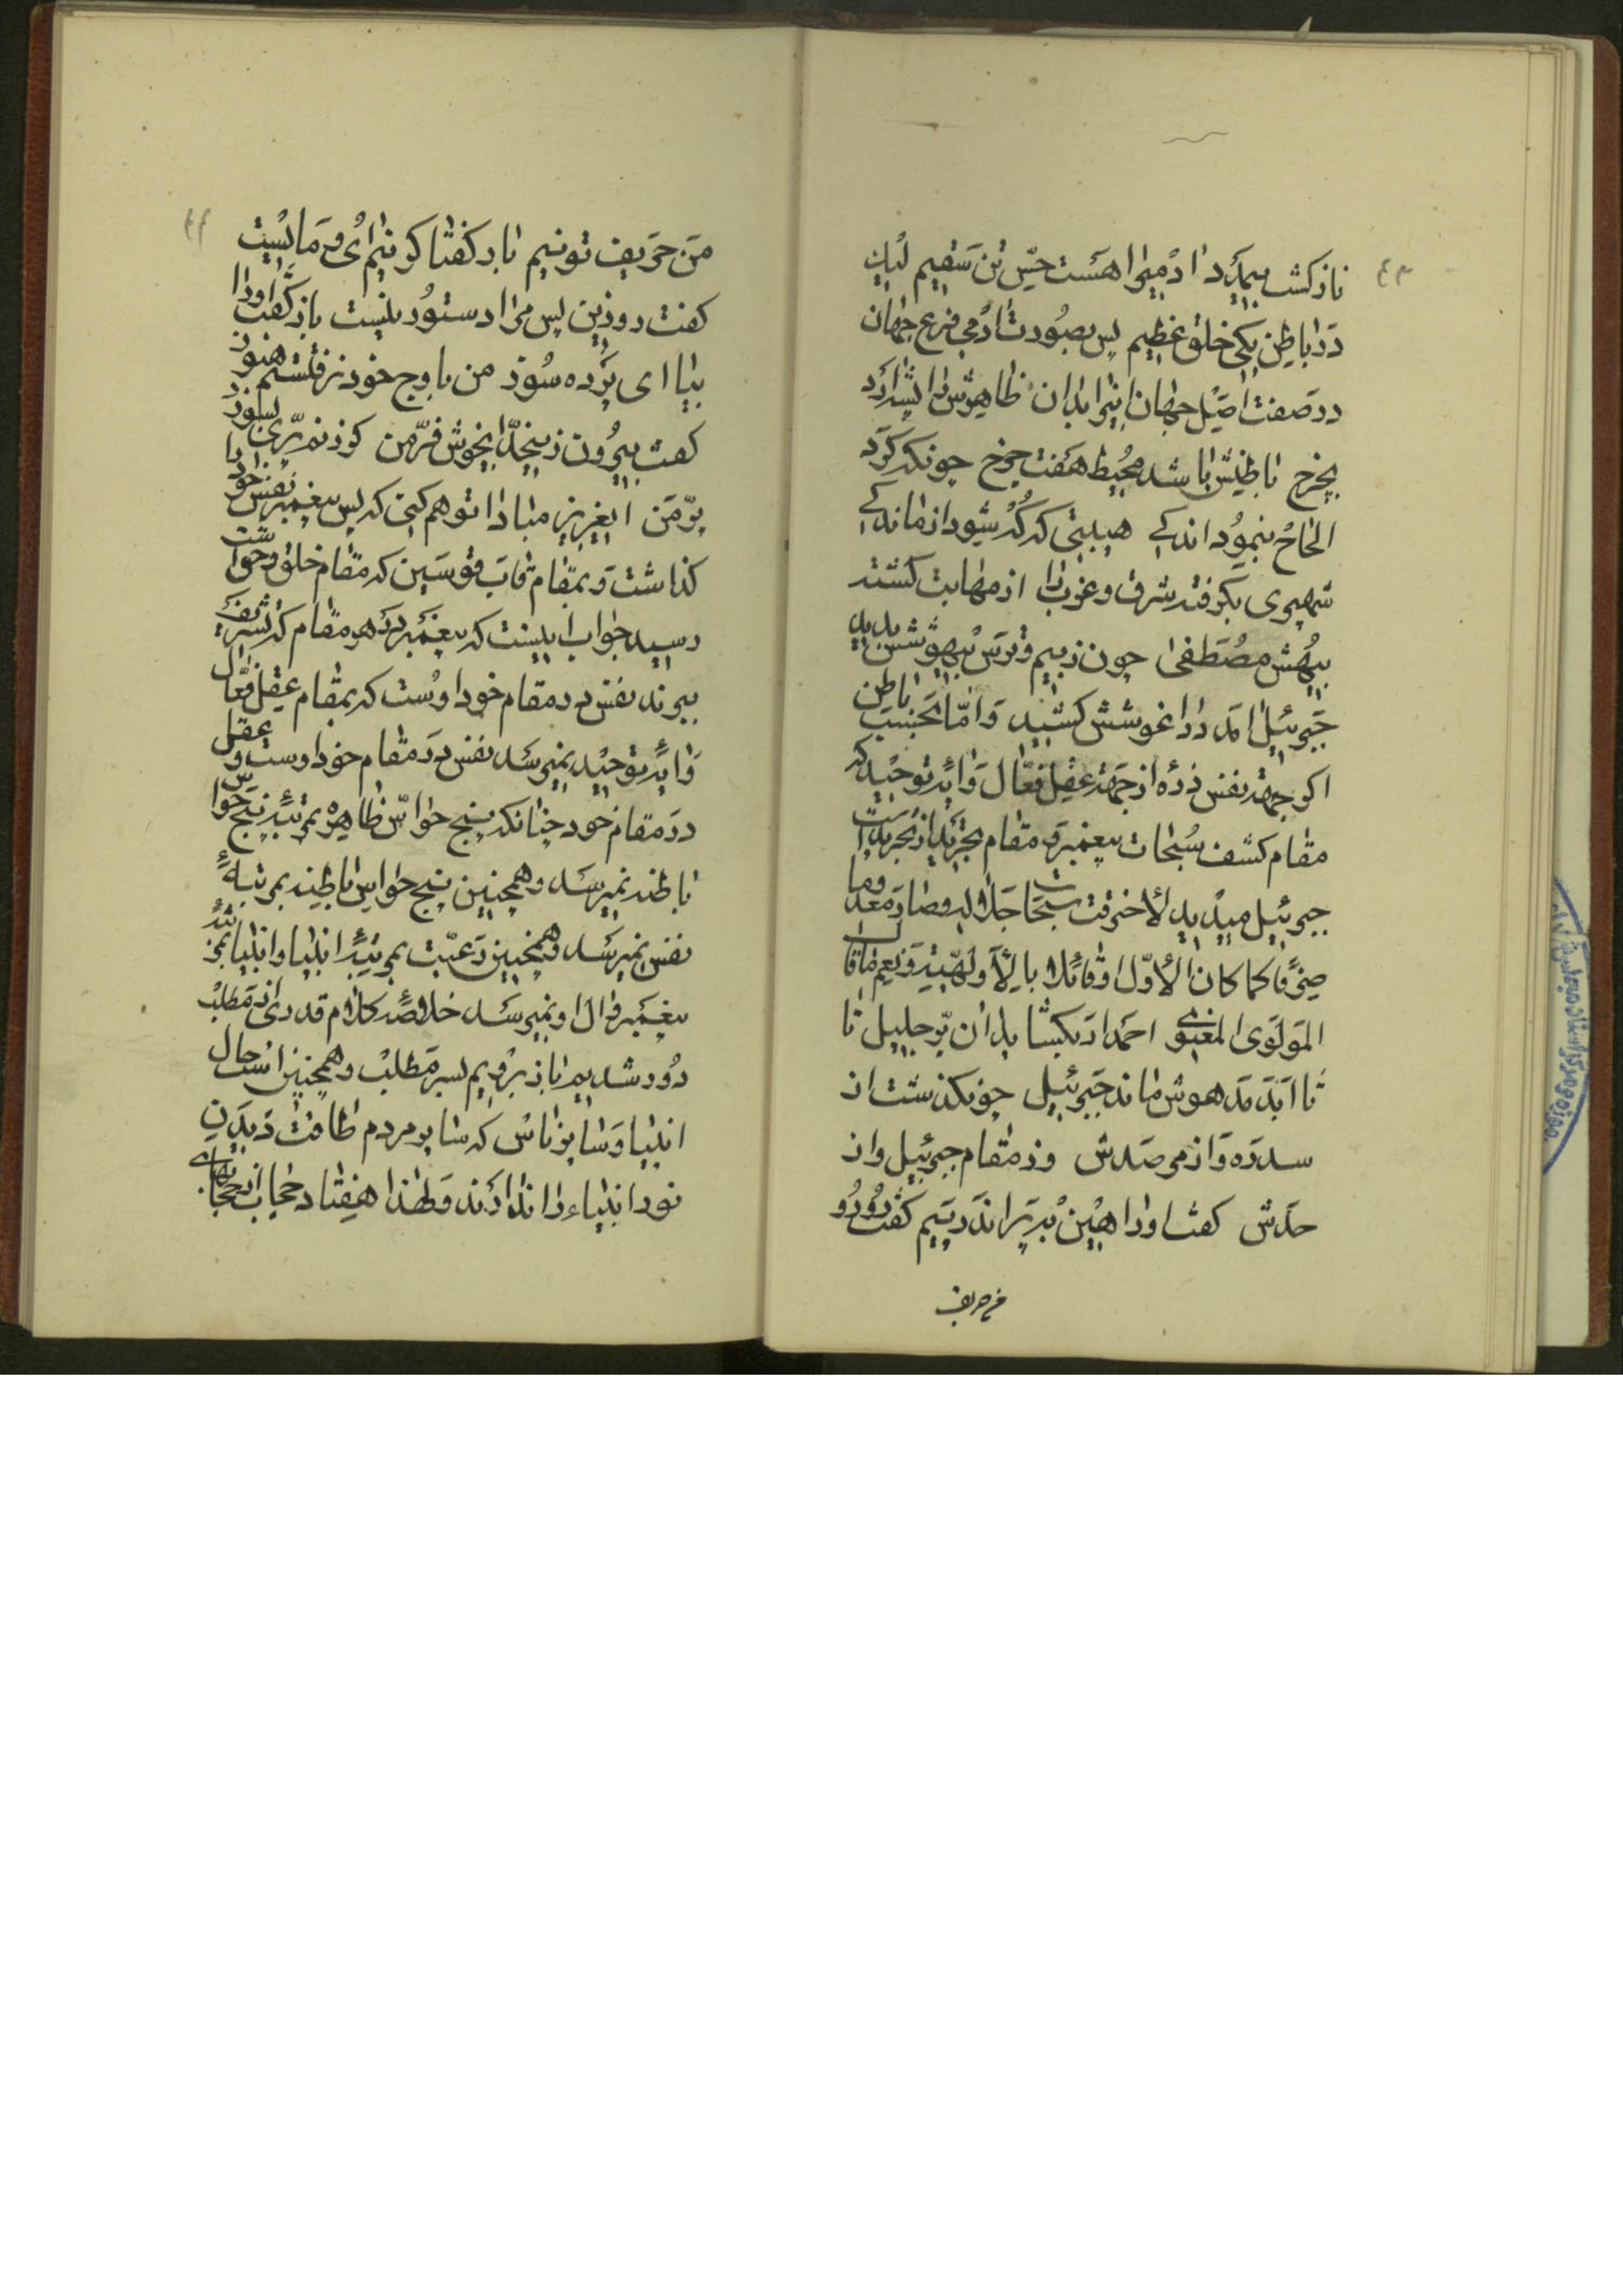 نازکشب بیمرد آدمی را هست حسّ تن سقیم لیک
در باطن یکی خلق عظیم پس بصورت آدمی فرع جهان
در صفت اصل جهان این را بدان ظاهرش را پشه آرد
بچرخ باطنش باشد محیط هفت چرخ چونکه کرد
الحاح بنمود اندکی هیبتی که که شود از آن مندکی
شهپری بگرفته شرق و غرب را از مهابت گشته
بیهش مصطفی چون ز بیم و ترس بیهوشش بدید
جبرئیل آمد در آغوشش کشید و امّا بحسب باطن
اگر جهة نفس زده از جهة عقل فعّال وائرۀ توحید که
مقام کشف سبحات پیغمبر و مقام تجرید از تجرید است
جبرئیل میدید لاحترقت سبحات جلاله و صار معدوما
صرفا کما کان الأوّل و قائلا بالأوّلیّة و نعم ما قال
المولوی المعنوی احمد ار بگشاید آن پرّ جلیل تا
تا ابد مدهوش ماند جبرئیل چونکه گذشت از
سدره و از مرصدش وز مقام جبرئیل و از
حدش گفت او را هین بپر اندر پیم گفت رو رو
من حریف
من حریف تو نیم باز گفتا کز پیم آی و مایست
گفت رو زین پس مرا دستور نیست باز گفت او را
بیا ای پرده سوز من باوج خود نرفتستم هنوز
گفت بیرون زین حد ای خوش فرّ من گر زنم پرّی بسوزد
پرّ من ای عزیز مبادا تو هم کنی که پس پیغمبر نفس خود را
گذاشت و بمقام قاب قوسین که مقام خلق و حواست
رسید جواب اینست که پیغمبر در هر مقام که تشریف
ببرند نفس در مقام خود اوست که بمقام عقل فعّال
وائرۀ توحید نمیرسد نفس در مقام خود اوست و عقل
در مقام خود چنانکه پنج حواسّ ظاهره بمرتبۀ پنج حواس
باطنه نمیرسد و همچنین پنج حواس باطنه بمرتبۀ
نفس نمیرسد و همچنین رعیّت بمرتبۀ انبیا و انبیا بمرتبۀ
پیغمبر و آل او نمیرسد خلاصۀ کلام قدری از مطلب
دور شدیم باز برویم بسر مطلب و همچنین است حال
انبیا و سایر ناس که سایر مردم طاقت دیدن
نور انبیاء را ندارند و لهذا هفتاد حجاب از حجابهای